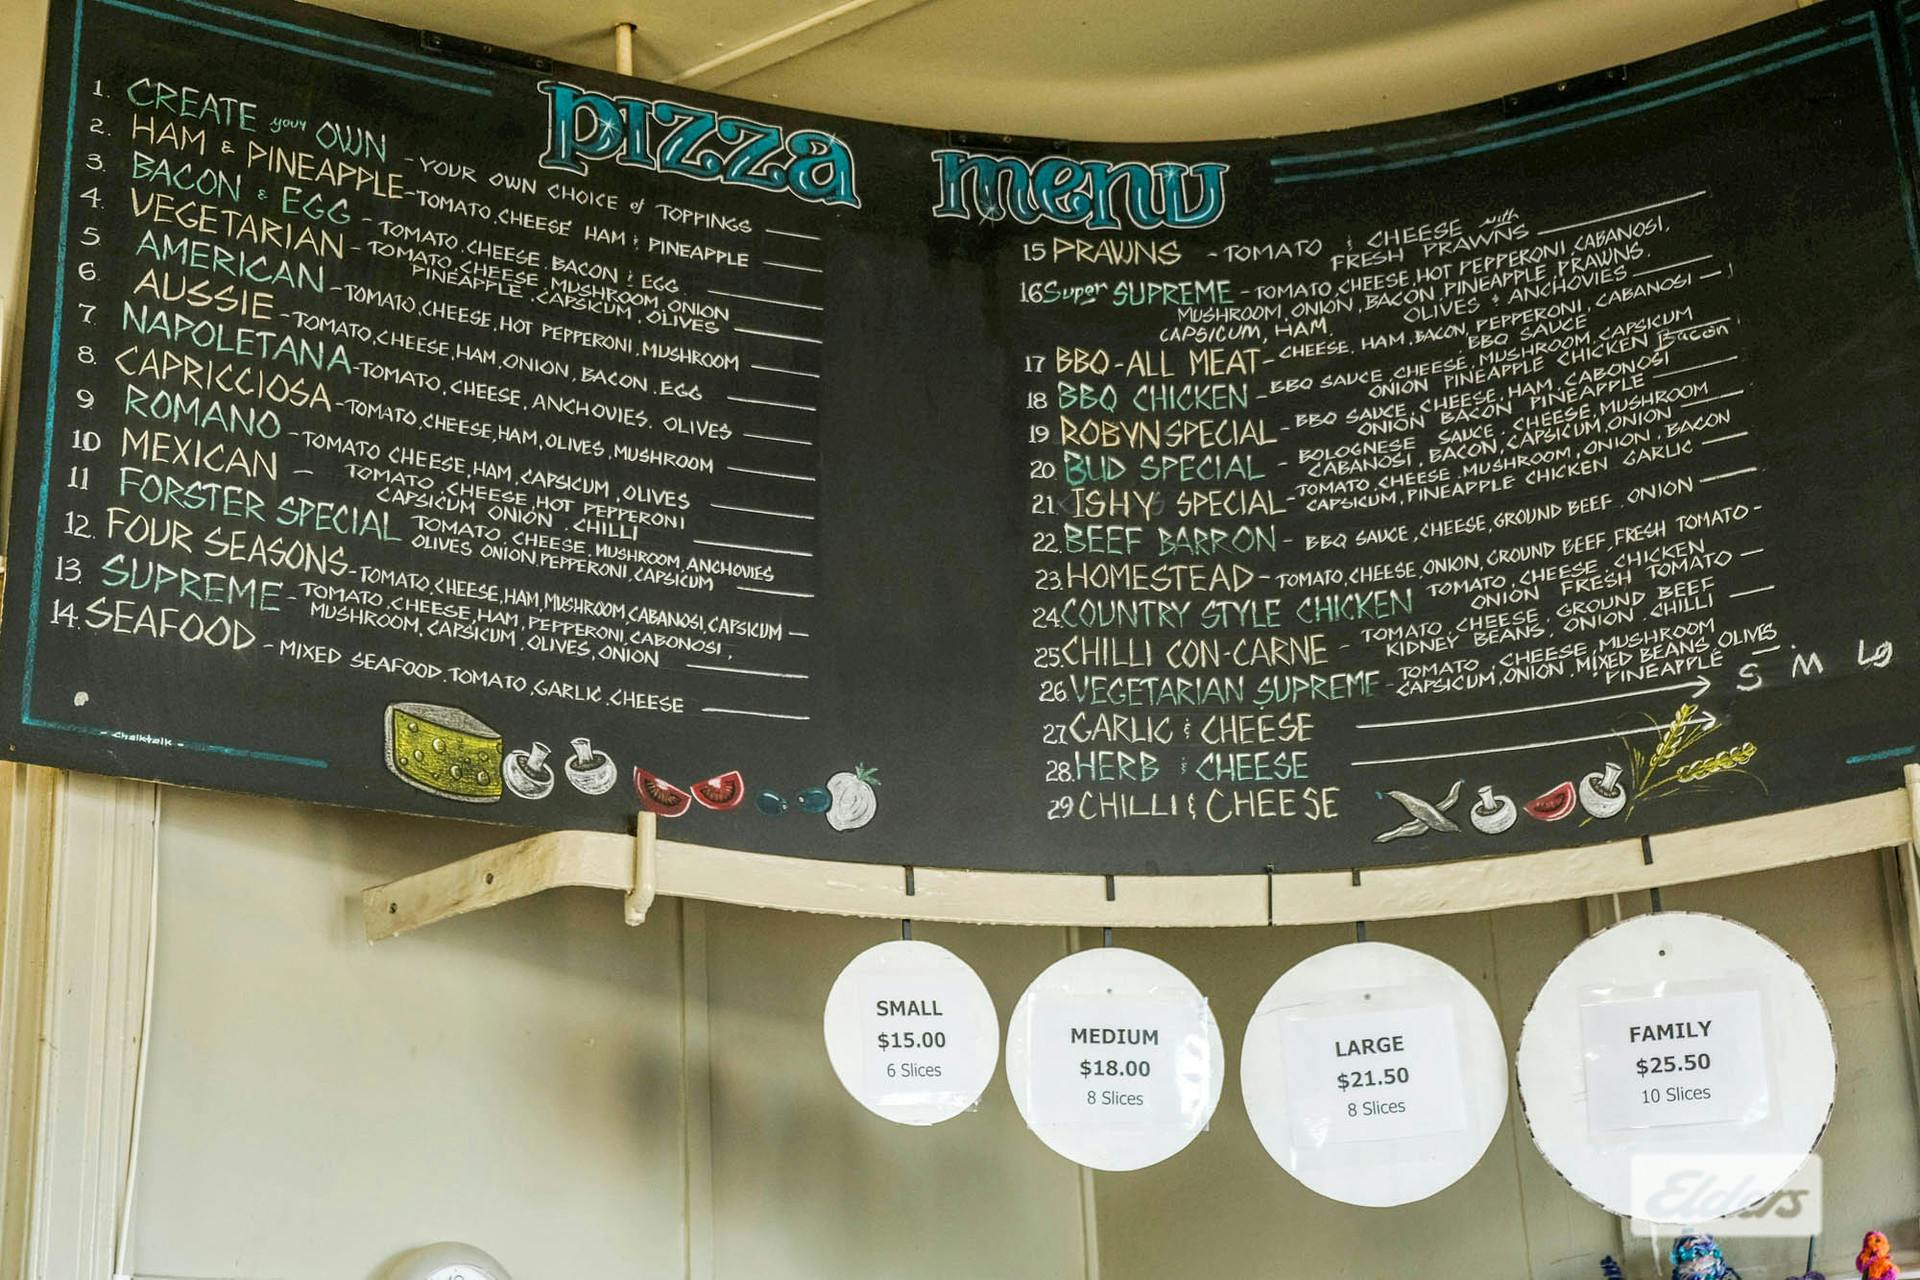 pizza menu
1. CREATE your OWN - YOUR OWN CHOICE of TOPPINGS
2. HAM & PINEAPPLE - TOMATO, CHEESE HAM & PINEAPPLE
3. BACON & EGG - TOMATO, CHEESE, BACON & EGG
4. VEGETARIAN - TOMATO, CHEESE, MUSHROOM, ONION
PINEAPPLE, CAPSICUM, OLIVES
5. AMERICAN - TOMATO, CHEESE, HOT PEPPERONI, MUSHROOM
6. AUSSIE - TOMATO, CHEESE, HAM, ONION, BACON, EGG
7. NAPOLETANA - TOMATO, CHEESE, ANCHOVIES, OLIVES
8. CAPRICCIOSA - TOMATO, CHEESE, HAM, OLIVES, MUSHROOM
9. ROMANO - TOMATO CHEESE, HAM, CAPSICUM, OLIVES
10 MEXICAN - TOMATO, CHEESE, HOT PEPPERONI
CAPSICUM ONION, CHILLI
11 FORSTER SPECIAL TOMATO, CHEESE, MUSHROOM, ANCHOVIES
OLIVES ONION PEPPERONI, CAPSICUM
12. FOUR SEASONS - TOMATO, CHEESE, HAM, MUSHROOM, CABANOSI, CAPSICUM
13. SUPREME - TOMATO, CHEESE, HAM, PEPPERONI, CABONOSI,
MUSHROOM, CAPSICUM, OLIVES, ONION
14. SEAFOOD - MIXED SEAFOOD, TOMATO, GARLIC, CHEESE
- Chalktalk -
15 PRAWNS - TOMATO & CHEESE with
FRESH PRAWNS
16 Super SUPREME - TOMATO, CHEESE, HOT PEPPERONI, CABANOSI,
MUSHROOM, ONION, BACON, PINEAPPLE, PRAWNS.
CAPSICUM, HAM, OLIVES & ANCHOVIES
17 BBQ-ALL MEAT - CHEESE, HAM, BACON, PEPPERONI, CABANOSI
BBQ SAUCE
18 BBQ CHICKEN - BBQ SAUCE, CHEESE, MUSHROOM, CAPSICUM
ONION PINEAPPLE CHICKEN Bacon
19 ROBYN SPECIAL - BBQ SAUCE, CHEESE, HAM, CABONOSI
ONION BACON PINEAPPLE
20 BUD SPECIAL - BOLOGNESE SAUCE, CHEESE, MUSHROOM
CABANOSI, BACON, CAPSICUM, ONION
21. ISHY SPECIAL - TOMATO, CHEESE, MUSHROOM, ONION, BACON
CAPSICUM, PINEAPPLE CHICKEN GARLIC
22. BEEF BARRON - BBQ SAUCE, CHEESE, GROUND BEEF, ONION
23. HOMESTEAD - TOMATO, CHEESE, ONION, GROUND BEEF, FRESH TOMATO
24. COUNTRY STYLE CHICKEN TOMATO, CHEESE, CHICKEN
ONION FRESH TOMATO
25. CHILLI CON-CARNE - TOMATO, CHEESE, GROUND BEEF
KIDNEY BEANS, ONION, CHILLI
26. VEGETARIAN SUPREME - TOMATO, CHEESE, MUSHROOM
CAPSICUM, ONION, MIXED BEANS, OLIVES
PINEAPPLE
27. GARLIC & CHEESE S M Lg
28. HERB & CHEESE
29 CHILLI & CHEESE
SMALL
$15.00
6 Slices
MEDIUM
$18.00
8 Slices
LARGE
$21.50
8 Slices
FAMILY
$25.50
10 Slices
Elders